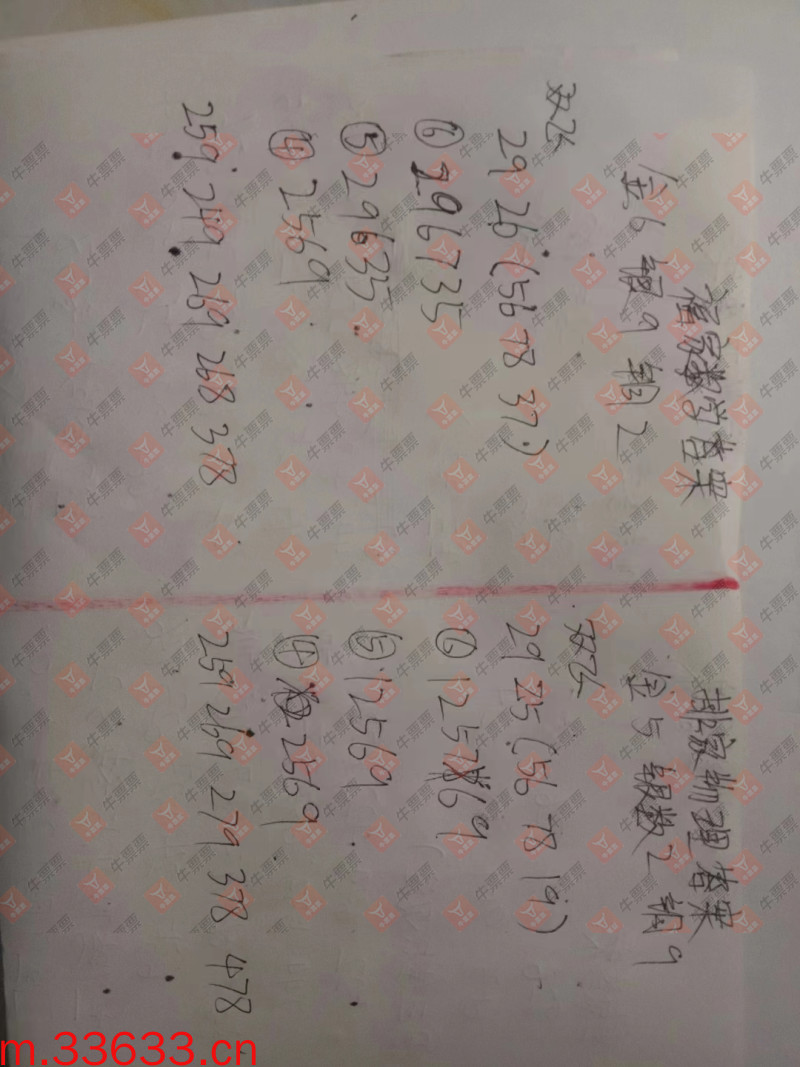 福家数学答案
金6 银9 铜2
双飞
29 26 (56 78 37)
⑥ 296735
⑤ 29635
④ 2569
259 249 269 268 378
答案
金5 银数2 铜9
双飞
29 25 (56 78 19)
⑥ 1257869
⑤ 12569
④ 2569
259 269 279 378 478
牛票票
m.33633.cn